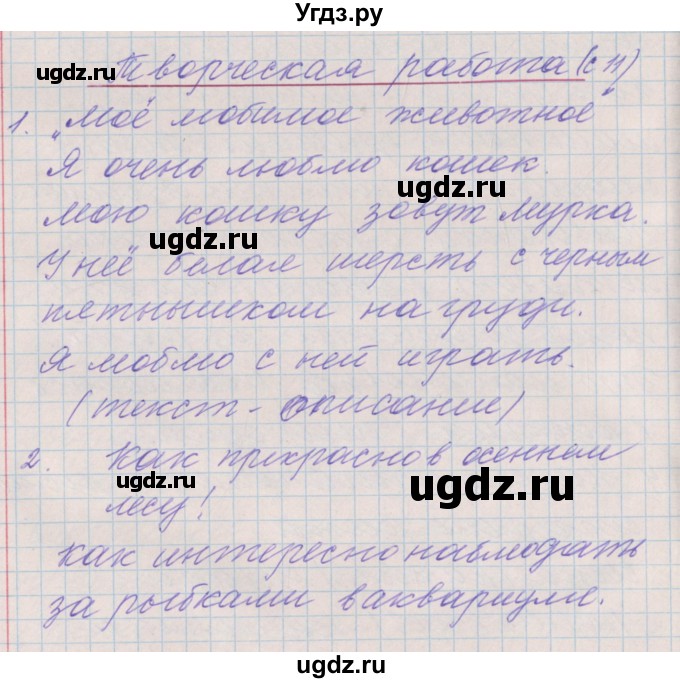 Угдз.ру
Творческая работа (с 11)
1. „Моё любимое животное"
Я очень люблю кошек.
Мою кошку зовут Мурка.
У неё белая шерсть с черным
пятнышком на груди.
Я люблю с ней играть.
(текст - описание)
2. Как прекрасно в осеннем
лесу!
Как интересно наблюдать
за рыбками в аквариуме.
ugdz.ru
ugdz.ru
ugdz.ru
ugdz.ru
ugdz.ru
ugdz.ru
ugdz.ru